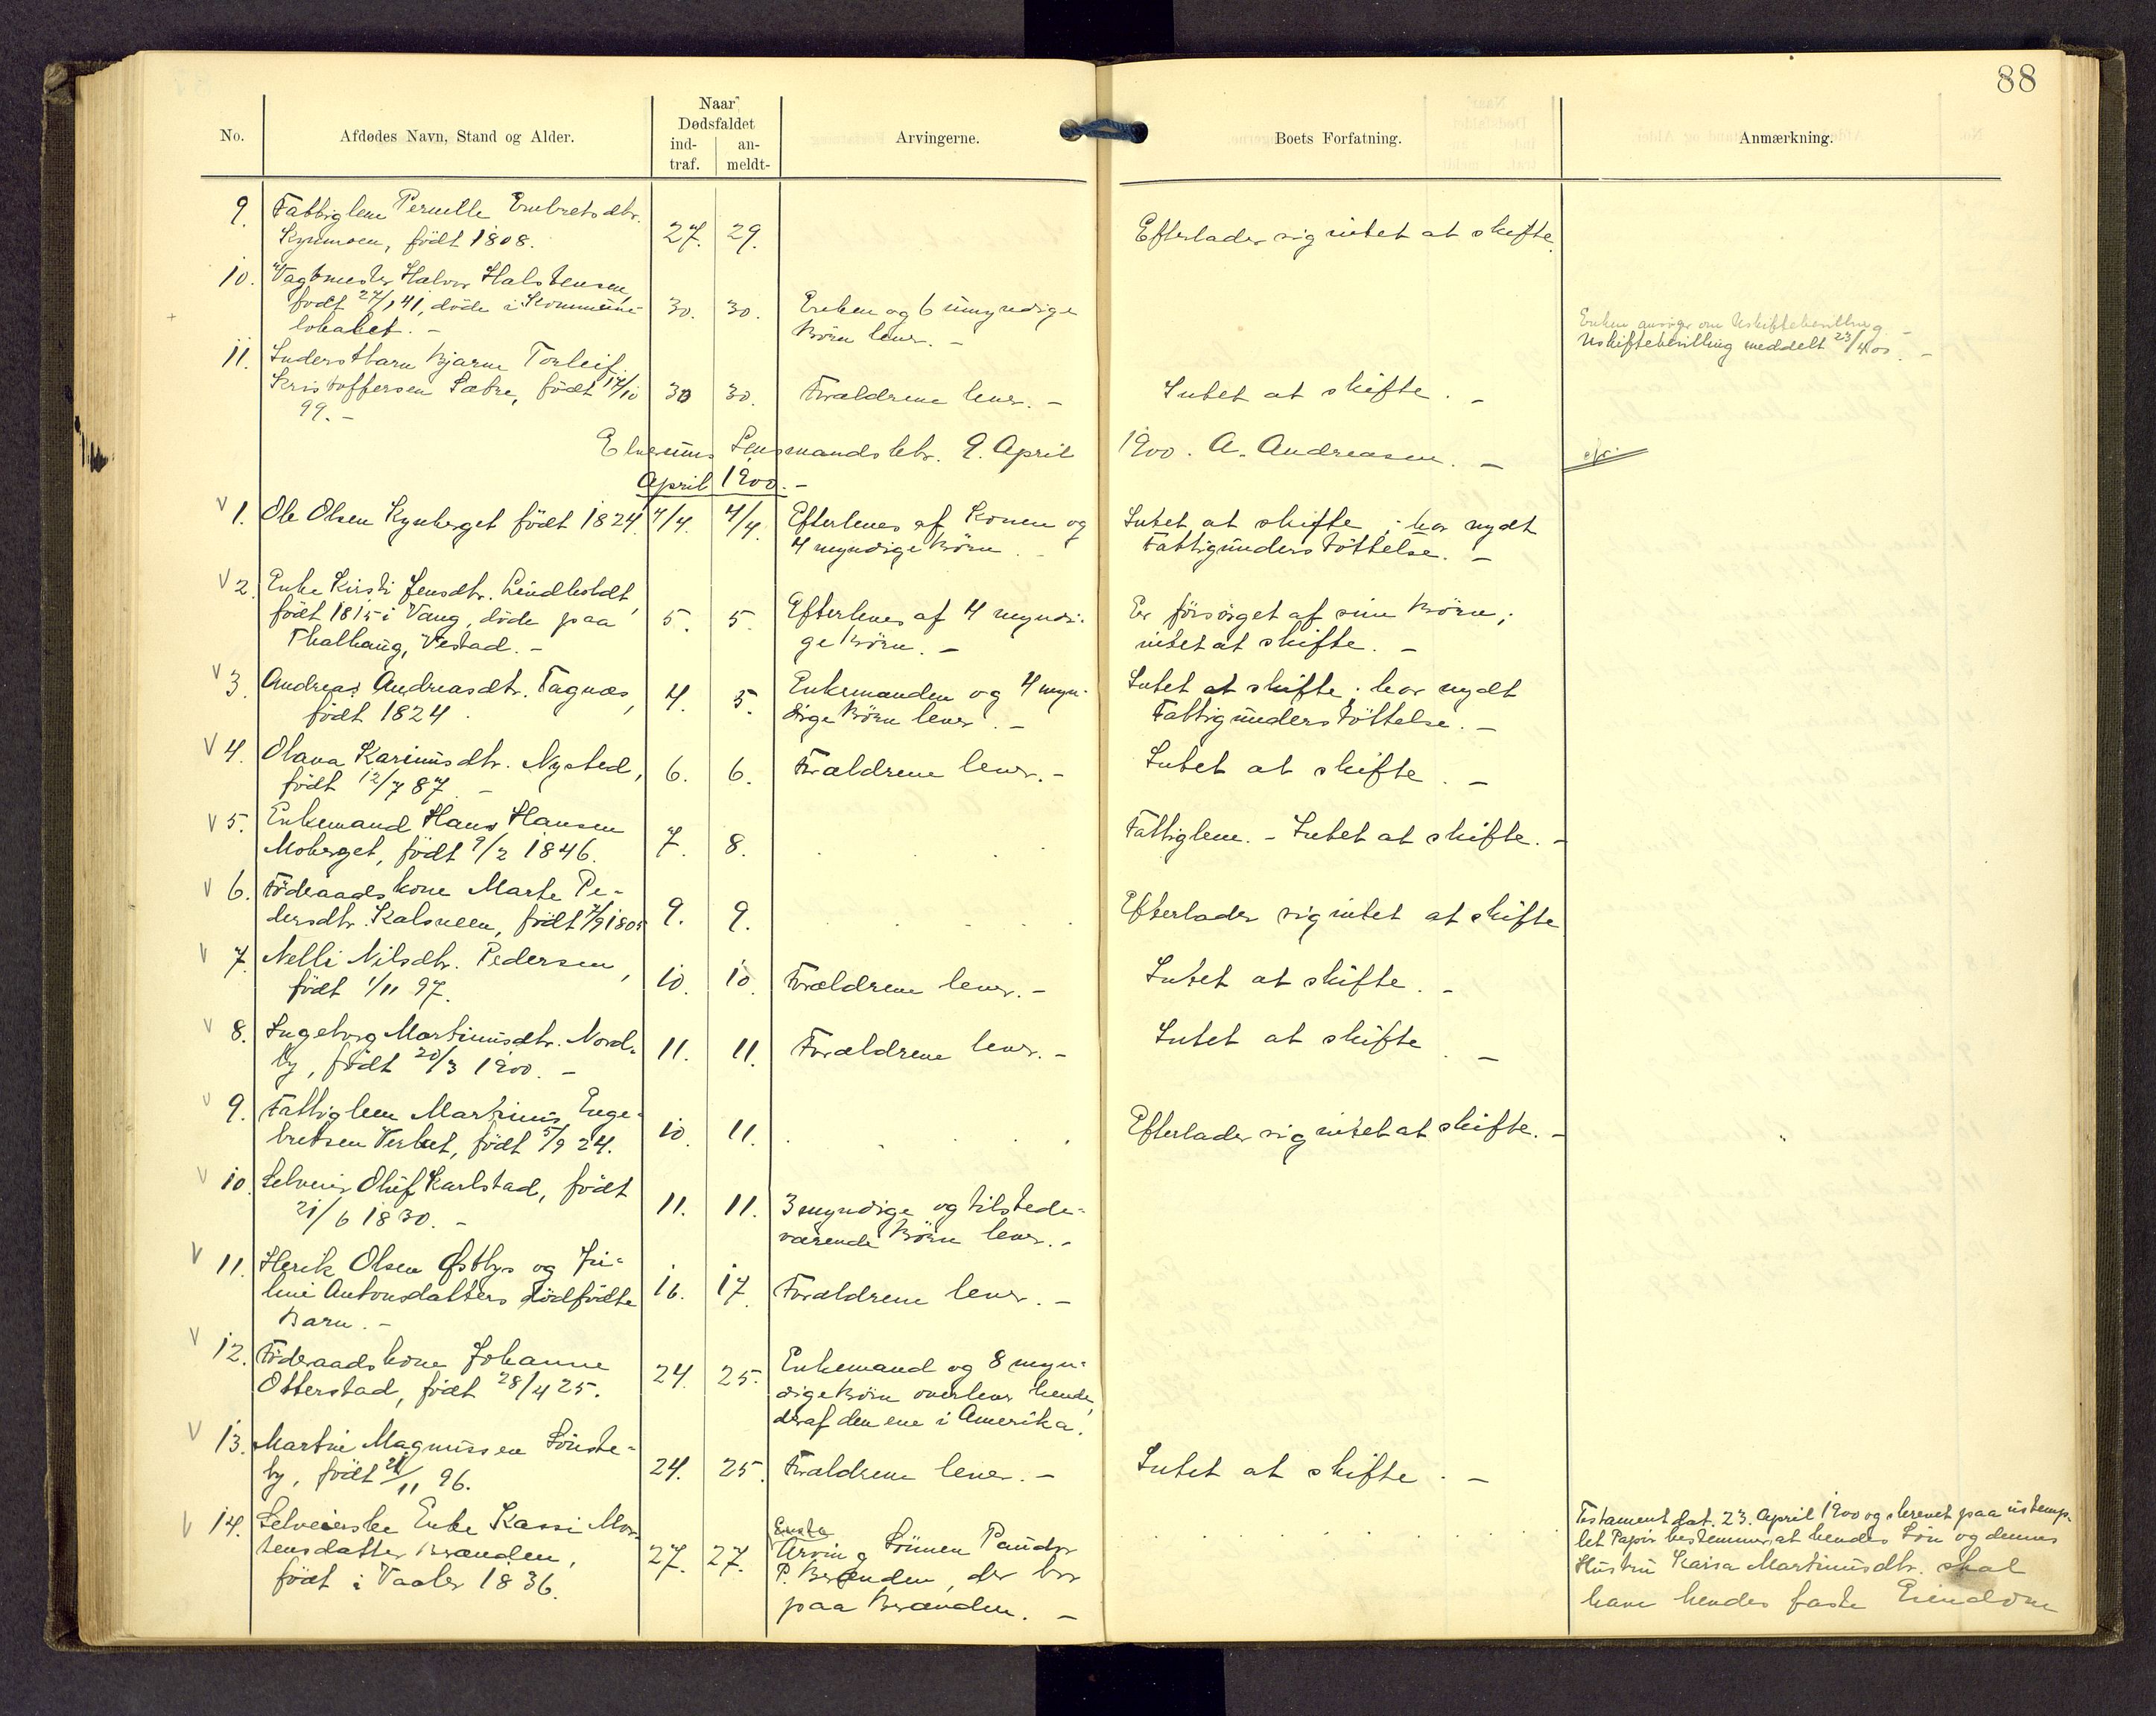 88
No.
Afdødes Navn, Stand og Alder.
Naar
Dødsfaldet
ind-
traf.
an-
meldt-
Arvingerne.
Boets Forfatning.
Anmærkning.
9. Fattiglem Pernille Embretsdtr. Kynmoen, födt 1808. 27. 29. Efterlader sig intet at skifte.
10. Vagtmester Halvor Halstensen,
födt 27/1 41, döde i Kommune-
lokalet. - 30. 30. Enken og 6 umyndige
Börn lever. -
Enken ansöger om Uskiftebevilling. -
Uskiftebevilling meddelt 23/4 00. -
11. Inderstbarn Bjarne Torleif
Kristoffersen Sætre, födt 17/10
99. - 30 30. Forældrene lever. - Intet at skifte. -
Elverums Lensmandsbbr. 9. April 1900. A. Andreasen. -
April 1900. -
V 1. Ole Olsen Kynberget födt 1824. 4/4. 4/4. Efterleves af Konen og
4 myndige Börn. - Intet at skifte; har nydt
Fattigunderstöttelse. -
V 2. Enke Kirsti Jensdtr. Lindholdt,
födt 1815 i Vang, döde paa
Thalhaug, Vestad. - 5. 5. Efterleves af 4 myndi-
ge Börn. - Er forsörget af sine Börn;
intet at skifte. -
V 3. Andrea Andreasdtr. Fagnæs,
födt 1824. 4. 5. Enkemanden og 4 myn-
dige Börn lever. - Intet at skifte; har nydt
Fattigunderstöttelse. -
V 4. Olava Kariusdtr. Nysted,
födt 12/7 87. - 6. 6. Forældrene lever. - Intet at skifte. -
V 5. Enkemand Hans Hansen
Moberget, födt 9/2 1846. 7. 8. Fattiglem. - Intet at skifte. -
V 6. Föderaadskone Marte Pe-
dersdtr. Kalsveen, födt 7/9 1805 9. 9. Efterlader sig intet at skifte
V 7. Nelli Nilsdtr. Pedersen,
födt 1/11 97. 10. 10. Forældrene lever. - Intet at skifte. -
V 8. Ingeborg Martinusdtr. Nord-
by, födt 20/3 1900. - 11. 11. Forældrene lever. - Intet at skifte. -
V 9. Fattiglem Martinus Enge-
bretsen Verket, födt 5/9 24. 10. 11. Efterlader sig intet at skifte. -
V 10. Selveier Oluf Karlstad, födt
21/6 1830. - 11. 11. 3 myndige og tilstede-
værende Börn lever. -
V 11. Henrik Olsen Østbys og Ju-
line Antonsdatters dödfödte
Barn. - 16. 17. Forældrene lever. -
V 12. Föderaadskone Johanne
Otterstad, födt 28/4 25. 24. 25. Enkemand og 8 myn-
dige Börn overlever hende,
deraf den ene i Amerika.
V 13. Martin Magnussen Sönste-
by, födt 21/11 96. 24. 25. Forældrene lever. - Intet at skifte. -
V 14. Selveierske Enke Kassi Mor-
tensdatter Brænden,
födt i Vaaler 1836. 27. 27. Eneste
Arving Sönnen Pauder
P. Brænden, der bor
paa Brænden. -
Testament dat. 23. April 1900 og skrevet paa ustemp-
let Papir bestemmer, at hendes Sön og dennes
Hustru Kaisa Martinusdtr. skal
have hendes faste Eiendom